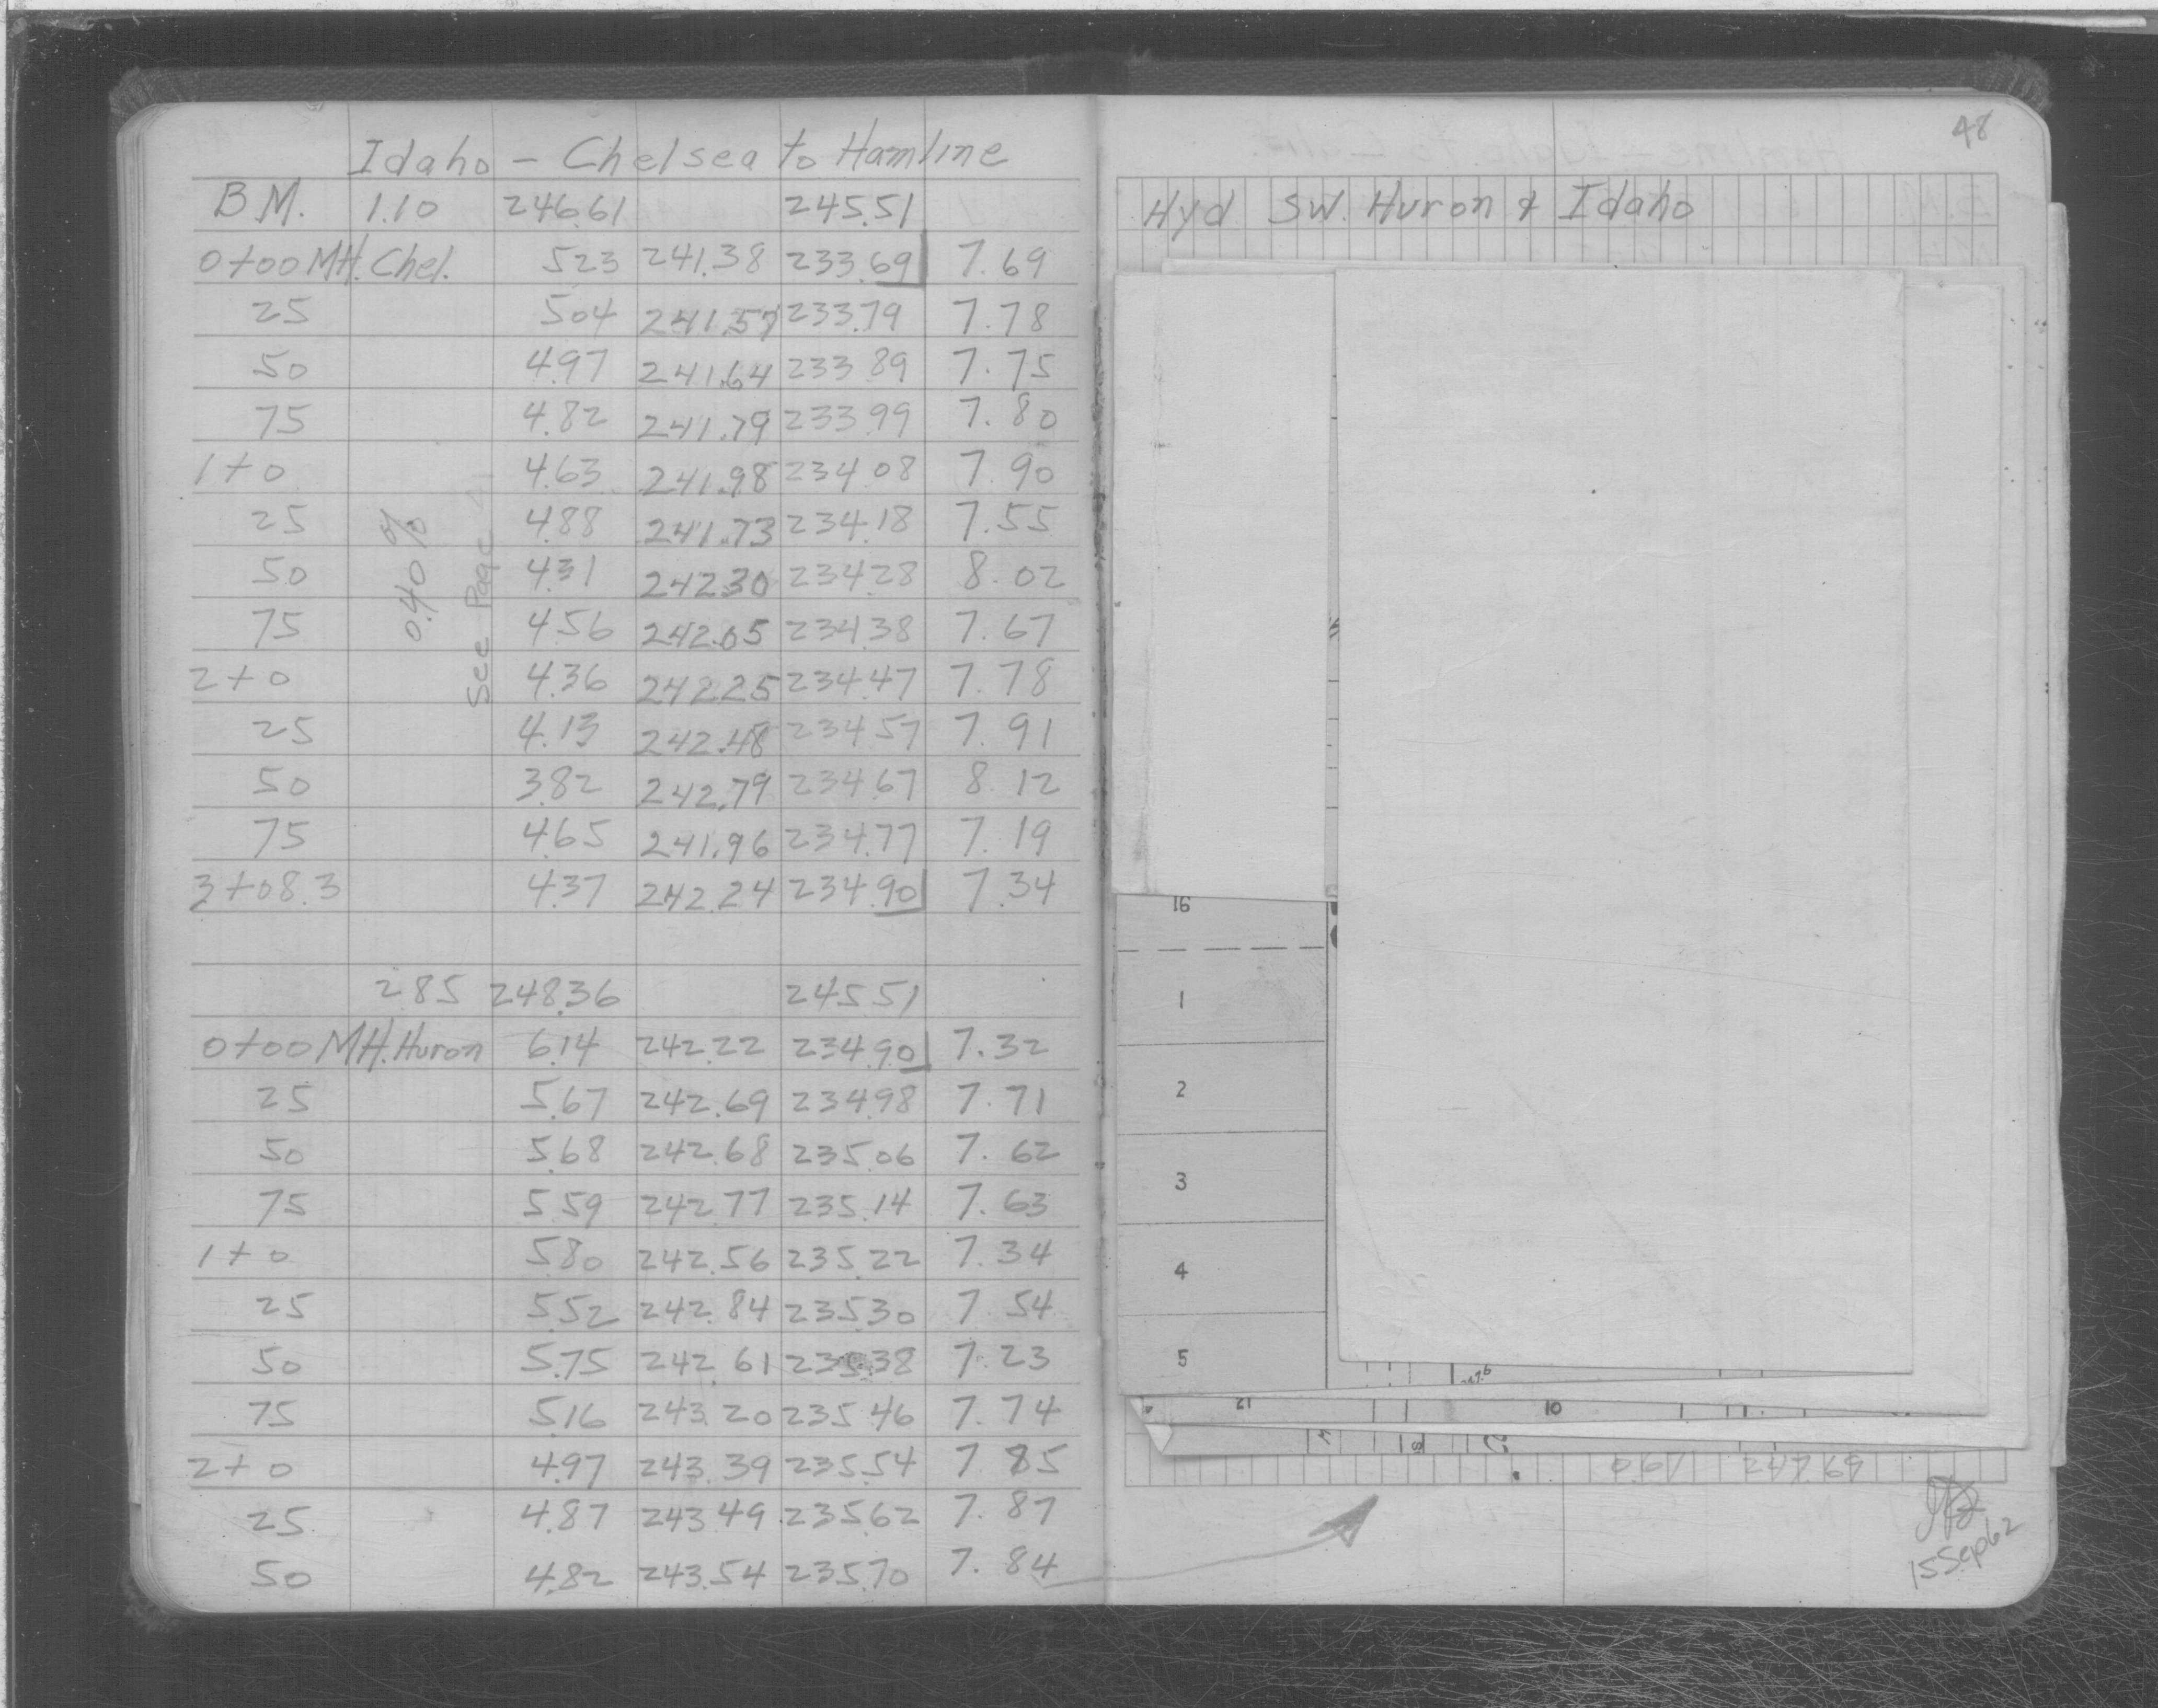 Idaho - Chelsea to Hamline
B.M. 1.10 246.61 245.51
0+00 MH. Chel. 5.23 241.38 233.69 7.69
25 5.04 241.57 233.79 7.78
50 4.97 241.64 233.89 7.75
75 4.82 241.79 233.99 7.80
1+0 4.63 241.98 234.08 7.90
25 4.88 241.73 234.18 7.55
50 4.31 242.30 234.28 8.02
75 4.56 242.05 234.38 7.67
2+0 4.36 242.25 234.47 7.78
25 4.13 242.48 234.57 7.91
50 3.82 242.79 234.67 8.12
75 4.65 241.96 234.77 7.19
3+08.3 4.37 242.24 234.90 7.34
0.40%
see Page
2.85 248.36 245.51
0+00 MH. Huron 6.14 242.22 234.90 7.32
25 5.67 242.69 234.98 7.71
50 5.68 242.68 235.06 7.62
75 5.59 242.77 235.14 7.63
1+0 5.80 242.56 235.22 7.34
25 5.52 242.84 235.30 7.54
50 5.75 242.61 235.38 7.23
75 5.16 243.20 235.46 7.74
2+0 4.97 243.39 235.54 7.85
25 4.87 243.49 235.62 7.87
50 4.82 243.54 235.70 7.84
48
Hyd SW. Huron & Idaho
16
1
2
3
4
5
21 10
0.61 247.69
15 Sep 62